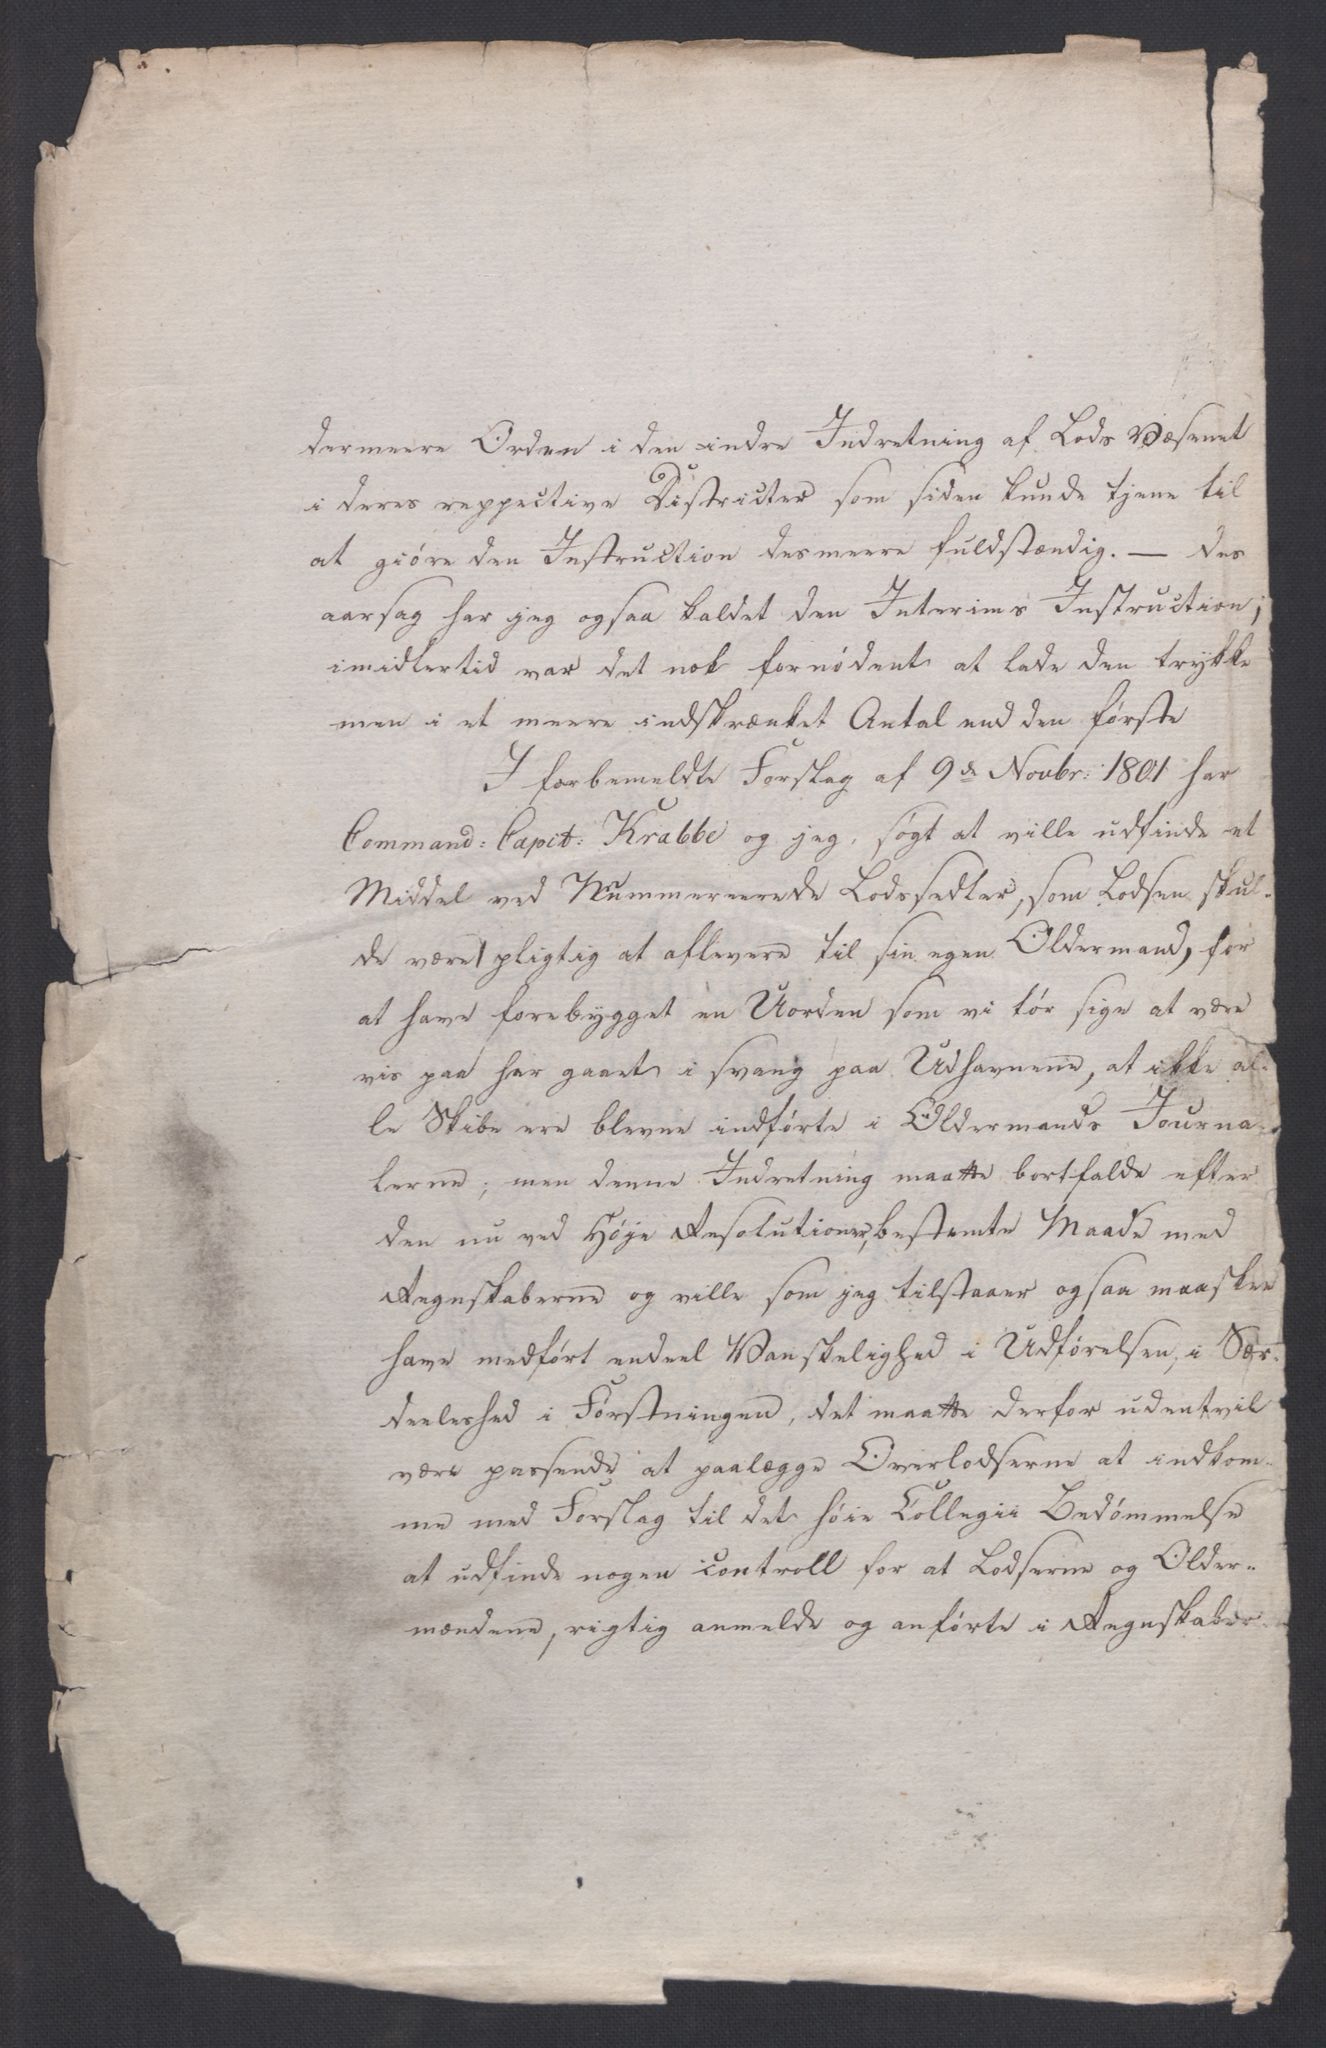 dermeere Orden i den indre Indretning af Lods Væsenet
i deres reppective Districter som siden kunde tjene til
at giöre den Instruction desmeere fuldstændig. — des
aarsag har jeg ogsaa kaldet den Interims Instruction;
imidlertid var det nok fornödent at lade den trykke
men i et meere indskrænket Antal end den første
I forbemeldte Forslag af 9de Novbr: 1801 har
Command: Capit: Krabbe og jeg, søgt at ville udfinde et
Middel ved Nummereerede Lodssedler, som Lodsen skul-
de være pligtig at aflevere til sin egen Oldermand, for
at have forebygget en Uorden som vi tör sige at være
vis paa har gaaet i svang paa Udhavnene, at ikke al-
le Skibe ere blevne indførte i Oldermands Journa-
lerne; men denne Indretning maatte bortfalde efter
den nu ved Høje Resolutioner, bestemte Maade med
Regnskaberne og ville som jeg tilstaaer ogsaa maaskee
have medført endeel Vanskelighed i Udførelsen, i Sær-
deeleshed i Førstningen, det maatte derfor udentvil
være passende at paalægge Overlodserne at indkom-
me med Forslag til det høie Collegii Bedömmelse
at udfinde nogen controll for at Lodserne og Older-
mændene, rigtig anmelde og anførte i Regnskaber-